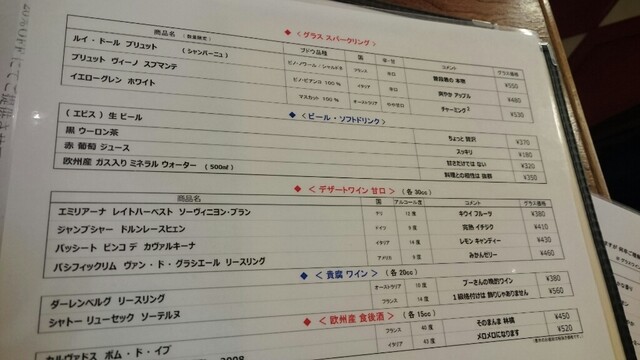 ◆ < グラス スパークリング >
商品名 (数量限定) ブドウ品種 国 辛・甘 コメント グラス価格
ルイ・ドール ブリュット (シャンパーニュ) ピノ・ノワール / シャルドネ フランス 辛口 本物 ¥550
ブリュット ヴィーノ スプマンテ ピノ・ビアンコ 100 % イタリア 辛口 爽やか アップル ¥480
イエローグレン ホワイト マスカット 100 % オーストラリア やや甘口 チャーミング♪ ¥530
◆ < ビール・ソフトドリンク >
( エビス ) 生 ビール ちょっと 贅沢 ¥370
黒 ウーロン茶 スッキリ ¥180
赤 葡萄 ジュース 甘さだけでは ない ¥320
欧州産 ガス入り ミネラル ウォーター (500ml) 料理との相性は 抜群 ¥350
◆ < デザートワイン 甘口 > (各 30cc)
商品名 国 アルコール度 コメント グラス価格
エミリアーナ レイトハーベスト ソーヴィニヨン・ブラン チリ 12 度 キウイ フルーツ ¥380
ジャンプシャー ドルンレースヒェン ドイツ 9 度 完熟 イチジク ¥410
パッシート ピンコ デ カヴァルキーナ イタリア 14 度 レモン キャンディー ¥430
パシフィックリム ヴァン・ド・グラシエール リースリング アメリカ 9 度 みかんゼリー ¥460
◆ < 貴腐 ワイン > (各 20cc)
ダーレンベルグ リースリング オーストラリア 10 度 プーさんの蜂蜜ワイン ¥380
シャトー リューセック ソーテルヌ フランス 14 度 1級格付けは 飾りじゃありません ¥560
◆ < 欧州産 食後酒 > (各 15cc)
カルヴァドス ポム・ド・イブ フランス 40 度 そのまんま 林檎 ¥450
2008 イタリア 43 度 メロメロになります ¥520